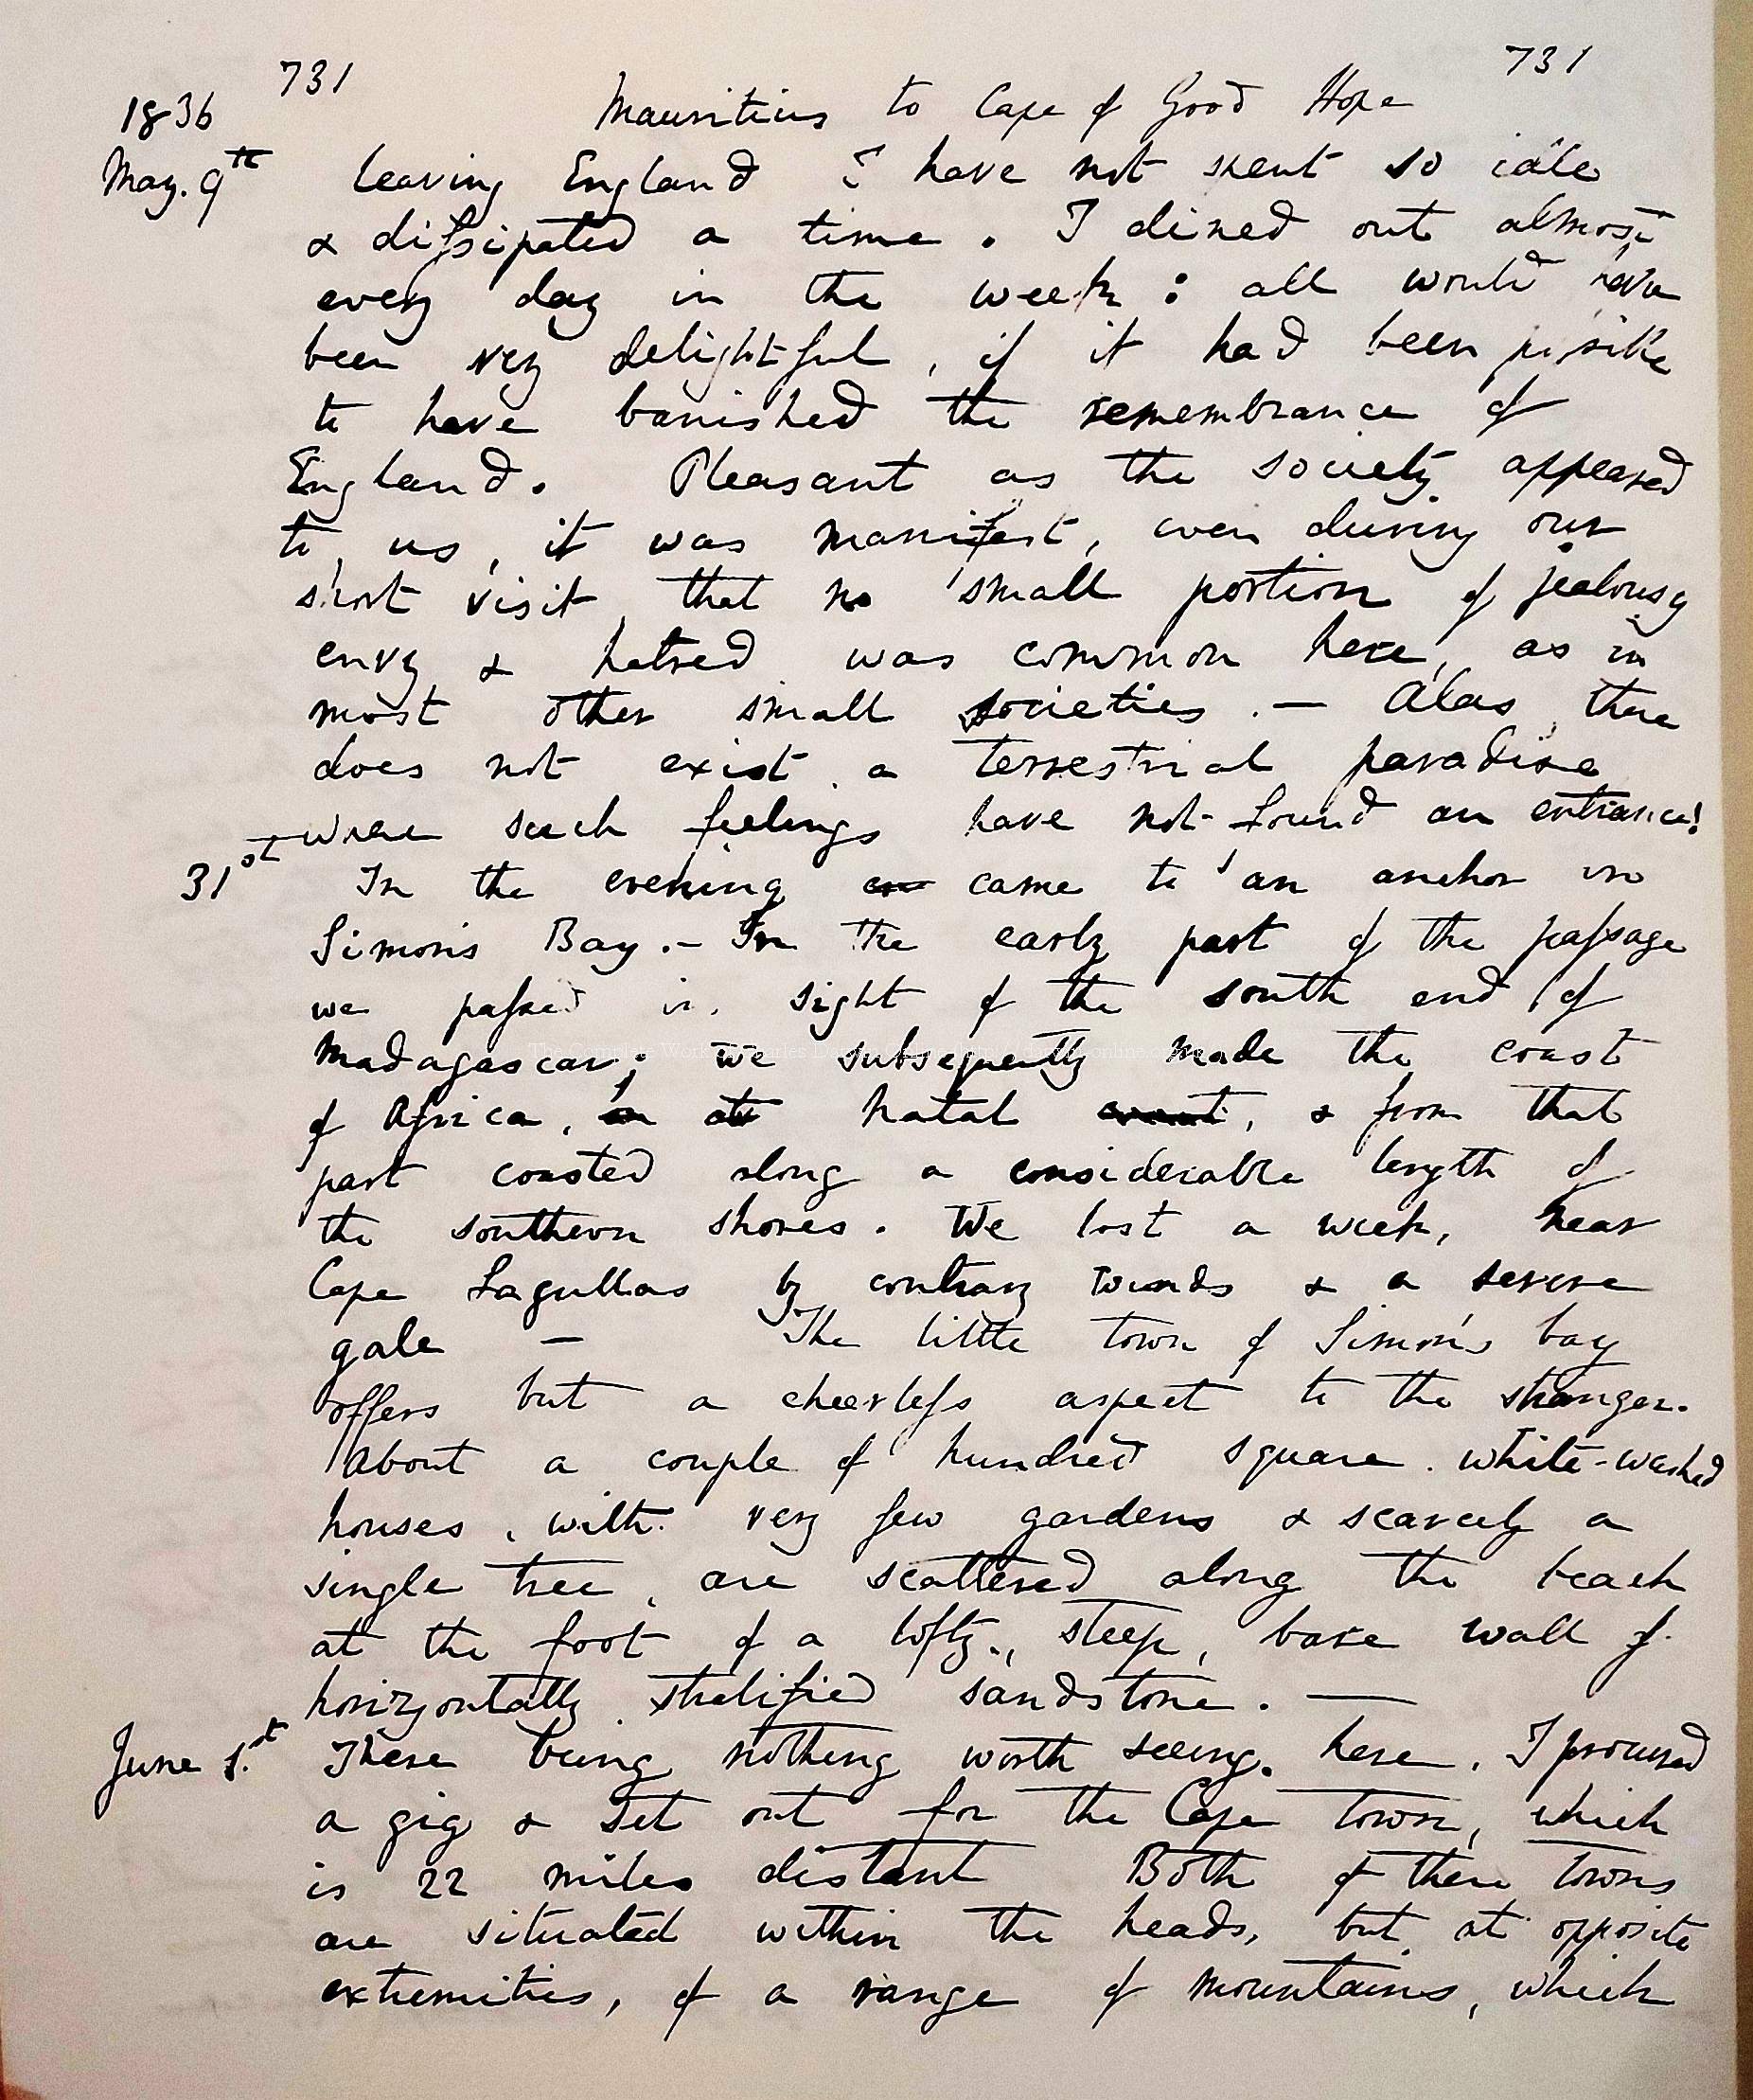 731 731
1836 Mauritius to Cape of Good Hope
May. 9th leaving England I have not spent so idle
& dissipated a time. I dined out almost
every day in the week: all would have
been very delightful, if it had been possible
to have banished the remembrance of
England. Pleasant as the society appeared
to us, it was manifest, even during our
short visit, that no small portion of jealousy
envy & hatred was common here, as in
most other small societies. — Alas, there
does not exist a terrestrial paradise
where such feelings have not found an entrance!
31st In the evening came to an anchor in
Simon's Bay. — In the early part of the passage
we passed in sight of the south end of
Madagascar; we subsequently made the coast
of Africa, at Natal, & from that
part coasted along a considerable length of
the southern shores. We lost a week, near
Cape Lagullas by contrary winds & a severe
gale — The little town of Simon's bay
offers but a cheerless aspect to the stranger.
About a couple of hundred square white-washed
houses, with very few gardens & scarcely a
single tree, are scattered along the beach
at the foot of a lofty, steep, bare wall of
horizontally stratified sandstone. —
June 1.st There being nothing worth seeing here, I procured
a gig & set out for the Cape town, which
is 22 miles distant Both of these towns
are situated within the heads, but at opposite
extremities, of a range of mountains, which